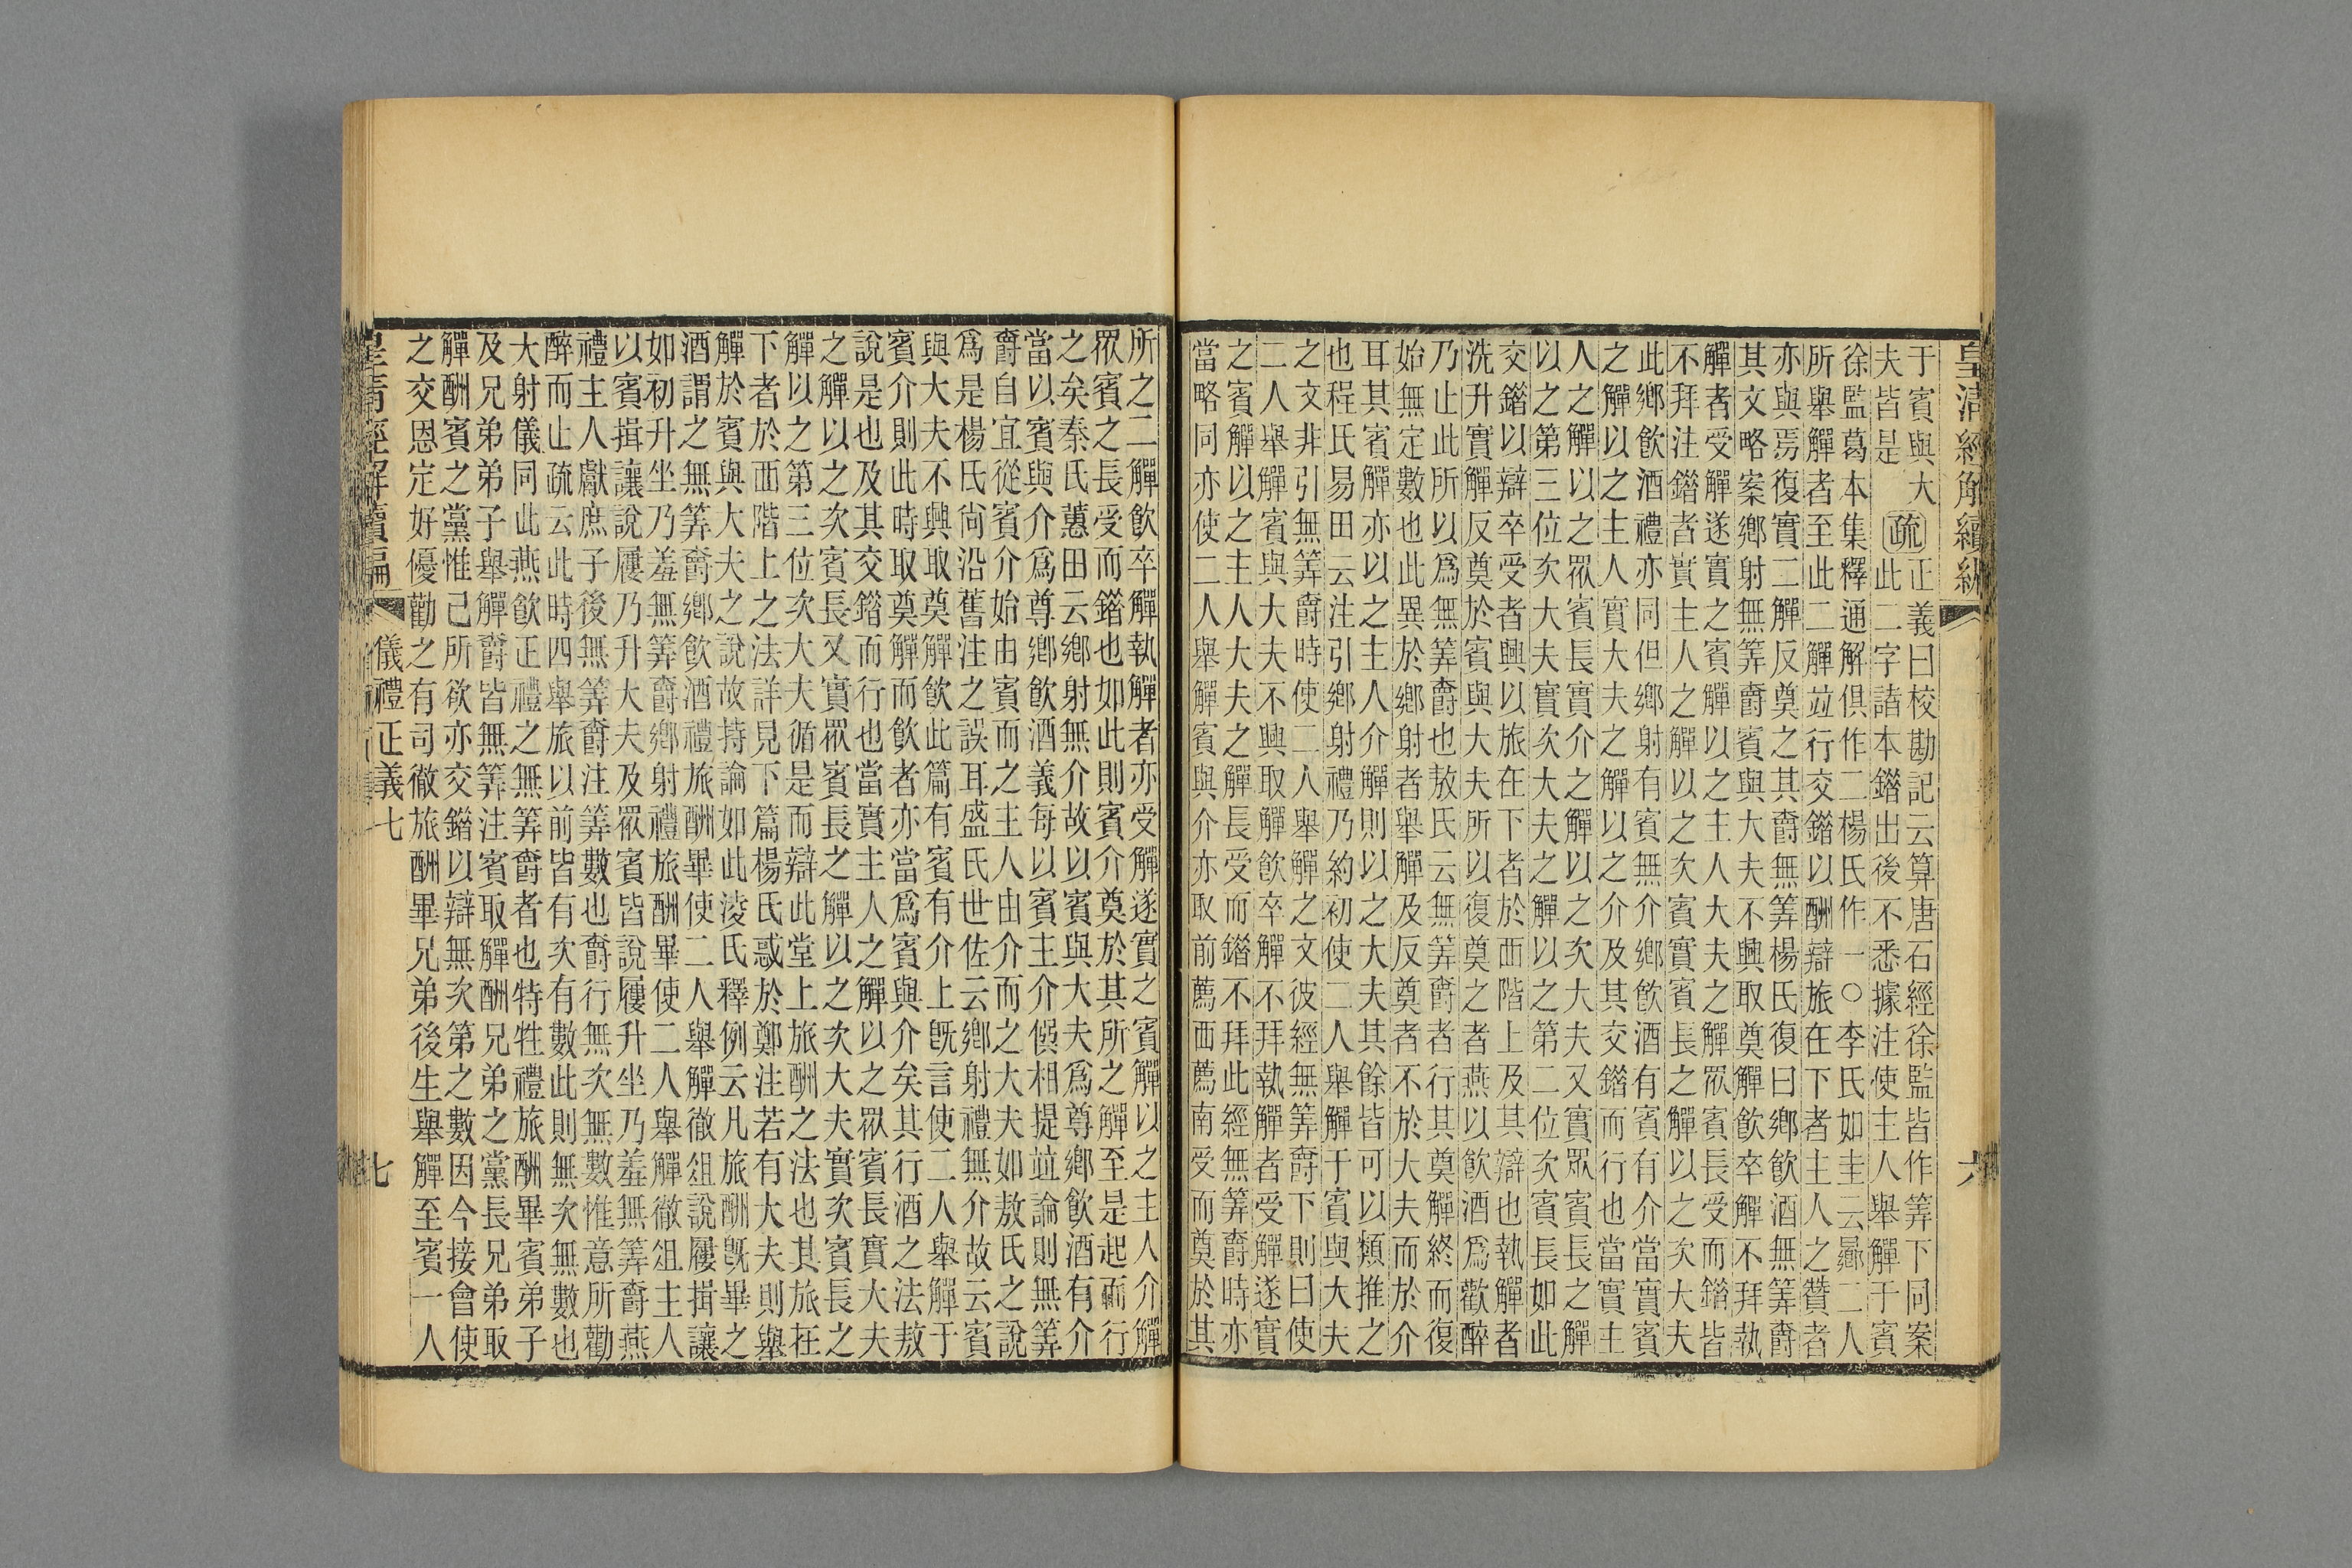 皇清經解續編
六
于賓與大
夫皆是
疏
正義曰校勘記云算唐石經徐監皆作筭下同案
此二字諸本錯出後不悉據注使主人舉觶于賓
徐監葛本集釋通解俱作二楊氏作一○李氏如圭云曏二人
所舉觶者至此二觶竝行交錯以酬辯旅在下者主人之贊者
亦與焉復實二觶反奠之其爵無筭楊氏復曰鄉飲酒無筭爵
其文略案鄉射無筭爵賓與大夫不興取奠觶飲卒觶不拜執
觶者受觶遂實之賓觶以之主人大夫之觶眾賓長受而錯皆
不拜注錯者實主人之觶以之次賓實賓長之觶以之次大夫
此鄉飲酒禮亦同但鄉射有賓無介鄉飲酒有賓有介當實賓
之觶以之主人實大夫之觶以之介及其交錯而行也當實主
人之觶以之眾賓長實介之觶以之次大夫又實眾賓長之觶
以之第三位次大夫實次大夫之觶以之第二位次賓長如此
交錯以辯卒受者興以旅在下者於西階上及其辯也執觶者
洗升實觶反奠於賓與大夫所以復奠之者燕以飲酒爲歡醉
乃止此所以爲無筭爵也敖氏云無筭爵者行其奠觶終而復
始無定數也此異於鄉射者舉觶及反奠者不於大夫而於介
耳其賓觶亦以之主人介觶則以之大夫其餘皆可以類推之
也程氏易田云注引鄉射禮乃約初使二人舉觶于賓與大夫
之文非引無筭爵時使二人舉觶之文彼經無筭爵下則曰使
二人舉觶賓與大夫不興取觶飲卒觶不拜執觶者受觶遂實
之賓觶以之主人大夫之觶長受而錯不拜此經無筭爵時亦
當略同亦使二人舉觶賓與介亦取前薦西薦南受而奠於其
所之二觶飲卒觶執觶者亦受觶遂實之賓觶以之主人介觶
眾賓之長受而錯也如此則賓介奠於其所之觶至是起而行
之矣秦氏蕙田云鄉射無介故以賓與大夫爲尊鄉飲酒有介
當以賓與介爲尊鄉飲酒義每以賓主介僎相提竝論則無筭
爵自宜從賓介始由賓而之主人由介而之大夫如敖氏之說
爲是楊氏尙沿舊注之誤耳盛氏世佐云鄉射禮無介故云賓
與大夫不興取奠觶飲此篇有賓有介上旣言使二人舉觶于
賓介則此時取奠觶而飲者亦當爲賓與介矣其行酒之法敖
說是也及其交錯而行也當實主人之觶以之眾賓長實大夫
之觶以之次賓長又實眾賓長之觶以之次大夫實次賓長之
觶以之第三位次大夫循是而辯此堂上旅酬之法也其旅在
下者於西階上之法詳見下篇楊氏惑於鄭注若有大夫則舉
觶於賓與大夫之說故持論如此淩氏釋例云凡旅酬旣畢之
酒謂之無筭爵鄉飲酒禮旅酬畢使二人舉觶徹俎說屨揖讓
如初升坐乃羞無筭爵鄉射禮旅酬畢使二人舉觶徹俎主人
以賓揖讓說屨乃升大夫及眾賓皆說屨升坐乃羞無筭爵燕
禮主人獻庶子後無筭爵注筭數也爵行無次無數惟意所勸
醉而止疏云此時四舉旅以前皆有次有數此則無次無數也
大射儀同此燕飲正禮之無筭爵者也特牲禮旅酬畢賓弟子
及兄弟弟子舉觶爵皆無筭注賓取觶酬兄弟之黨長兄弟取
觶酬賓之黨惟己所欲亦交錯以辯無次第之數因今接會使
之交恩定好優勸之有司徹旅酬畢兄弟後生舉觶至賓一人
皇清經解續編
儀禮正義七
七